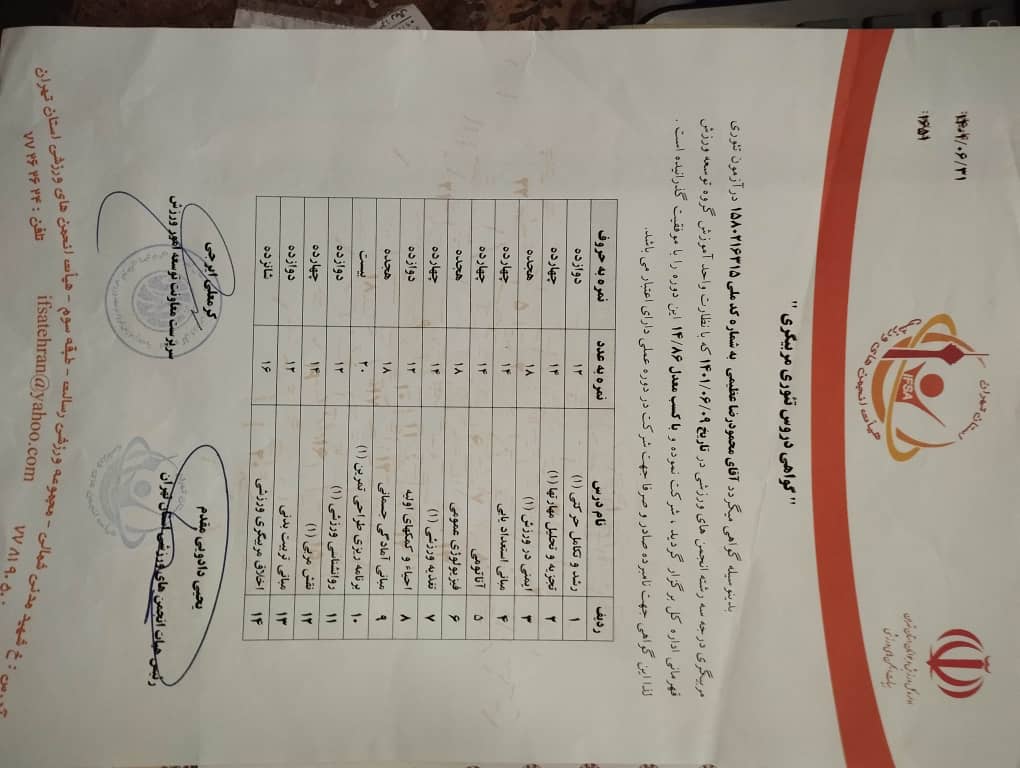 ۱۴۰۴/۰۶/۳۱
۱۶۵۱:
استان تهران
هیات انجمن های ورزشی
IFSA
"گواهی دروس تئوری مربیگری"
بدینوسیله گواهی میگردد آقای محمودرضا عظیمی به شماره کد ملی ۱۵۸۰۲۱۶۳۱۵ در آزمون تئوری
مربیگری درجه سه رشته انجمن های ورزشی در تاریخ ۱۴۰۱/۰۶/۰۹ که با نظارت واحد آموزش گروه توسعه ورزش
قهرمانی اداره کل برگزار گردید ، شرکت نموده و با کسب معدل ۱۴/۸۶ این دوره را با موفقیت گذرانیده است .
لذا این گواهی جهت نامبرده صادر و صرفا جهت شرکت در دوره عملی دارای اعتبار می باشد.
ردیف نام درس نمره به عدد نمره به حروف
۱ رشد و تکامل حرکتی (۱) ۱۲ دوازده
۲ تجزیه و تحلیل مهارتها (۱) ۱۴ چهارده
۳ ایمنی در ورزش (۱) ۱۸ هجده
۴ مبانی استعداد یابی ۱۴ چهارده
۵ آناتومی ۱۴ چهارده
۶ فیزیولوژی عمومی ۱۸ هجده
۷ تغذیه ورزشی (۱) ۱۴ چهارده
۸ احیاء و کمکهای اولیه ۱۲ دوازده
۹ مبانی آمادگی جسمانی ۱۸ هجده
۱۰ برنامه ریزی طراحی تمرین (۱) ۲۰ بیست
۱۱ روانشناسی ورزشی (۱) ۱۲ دوازده
۱۲ نقش مربی (۱) ۱۴ چهارده
۱۳ مبانی تربیت بدنی ۱۲ دوازده
۱۴ اخلاق مربیگری ورزشی ۱۶ شانزده
یحیی دادویی مقدم
رئیس هیات انجمن های ورزشی استان تهران
کرمعلی ایرجی
سرپرست معاونت توسعه امور ورزش
خ شهید مدنی شمالی - مجموعه ورزشی رسالت - طبقه سوم - هیات انجمن های ورزشی استان تهران
تلفن : ۷۷۲۶۲۶۲۴ ifsatehran@yahoo.com